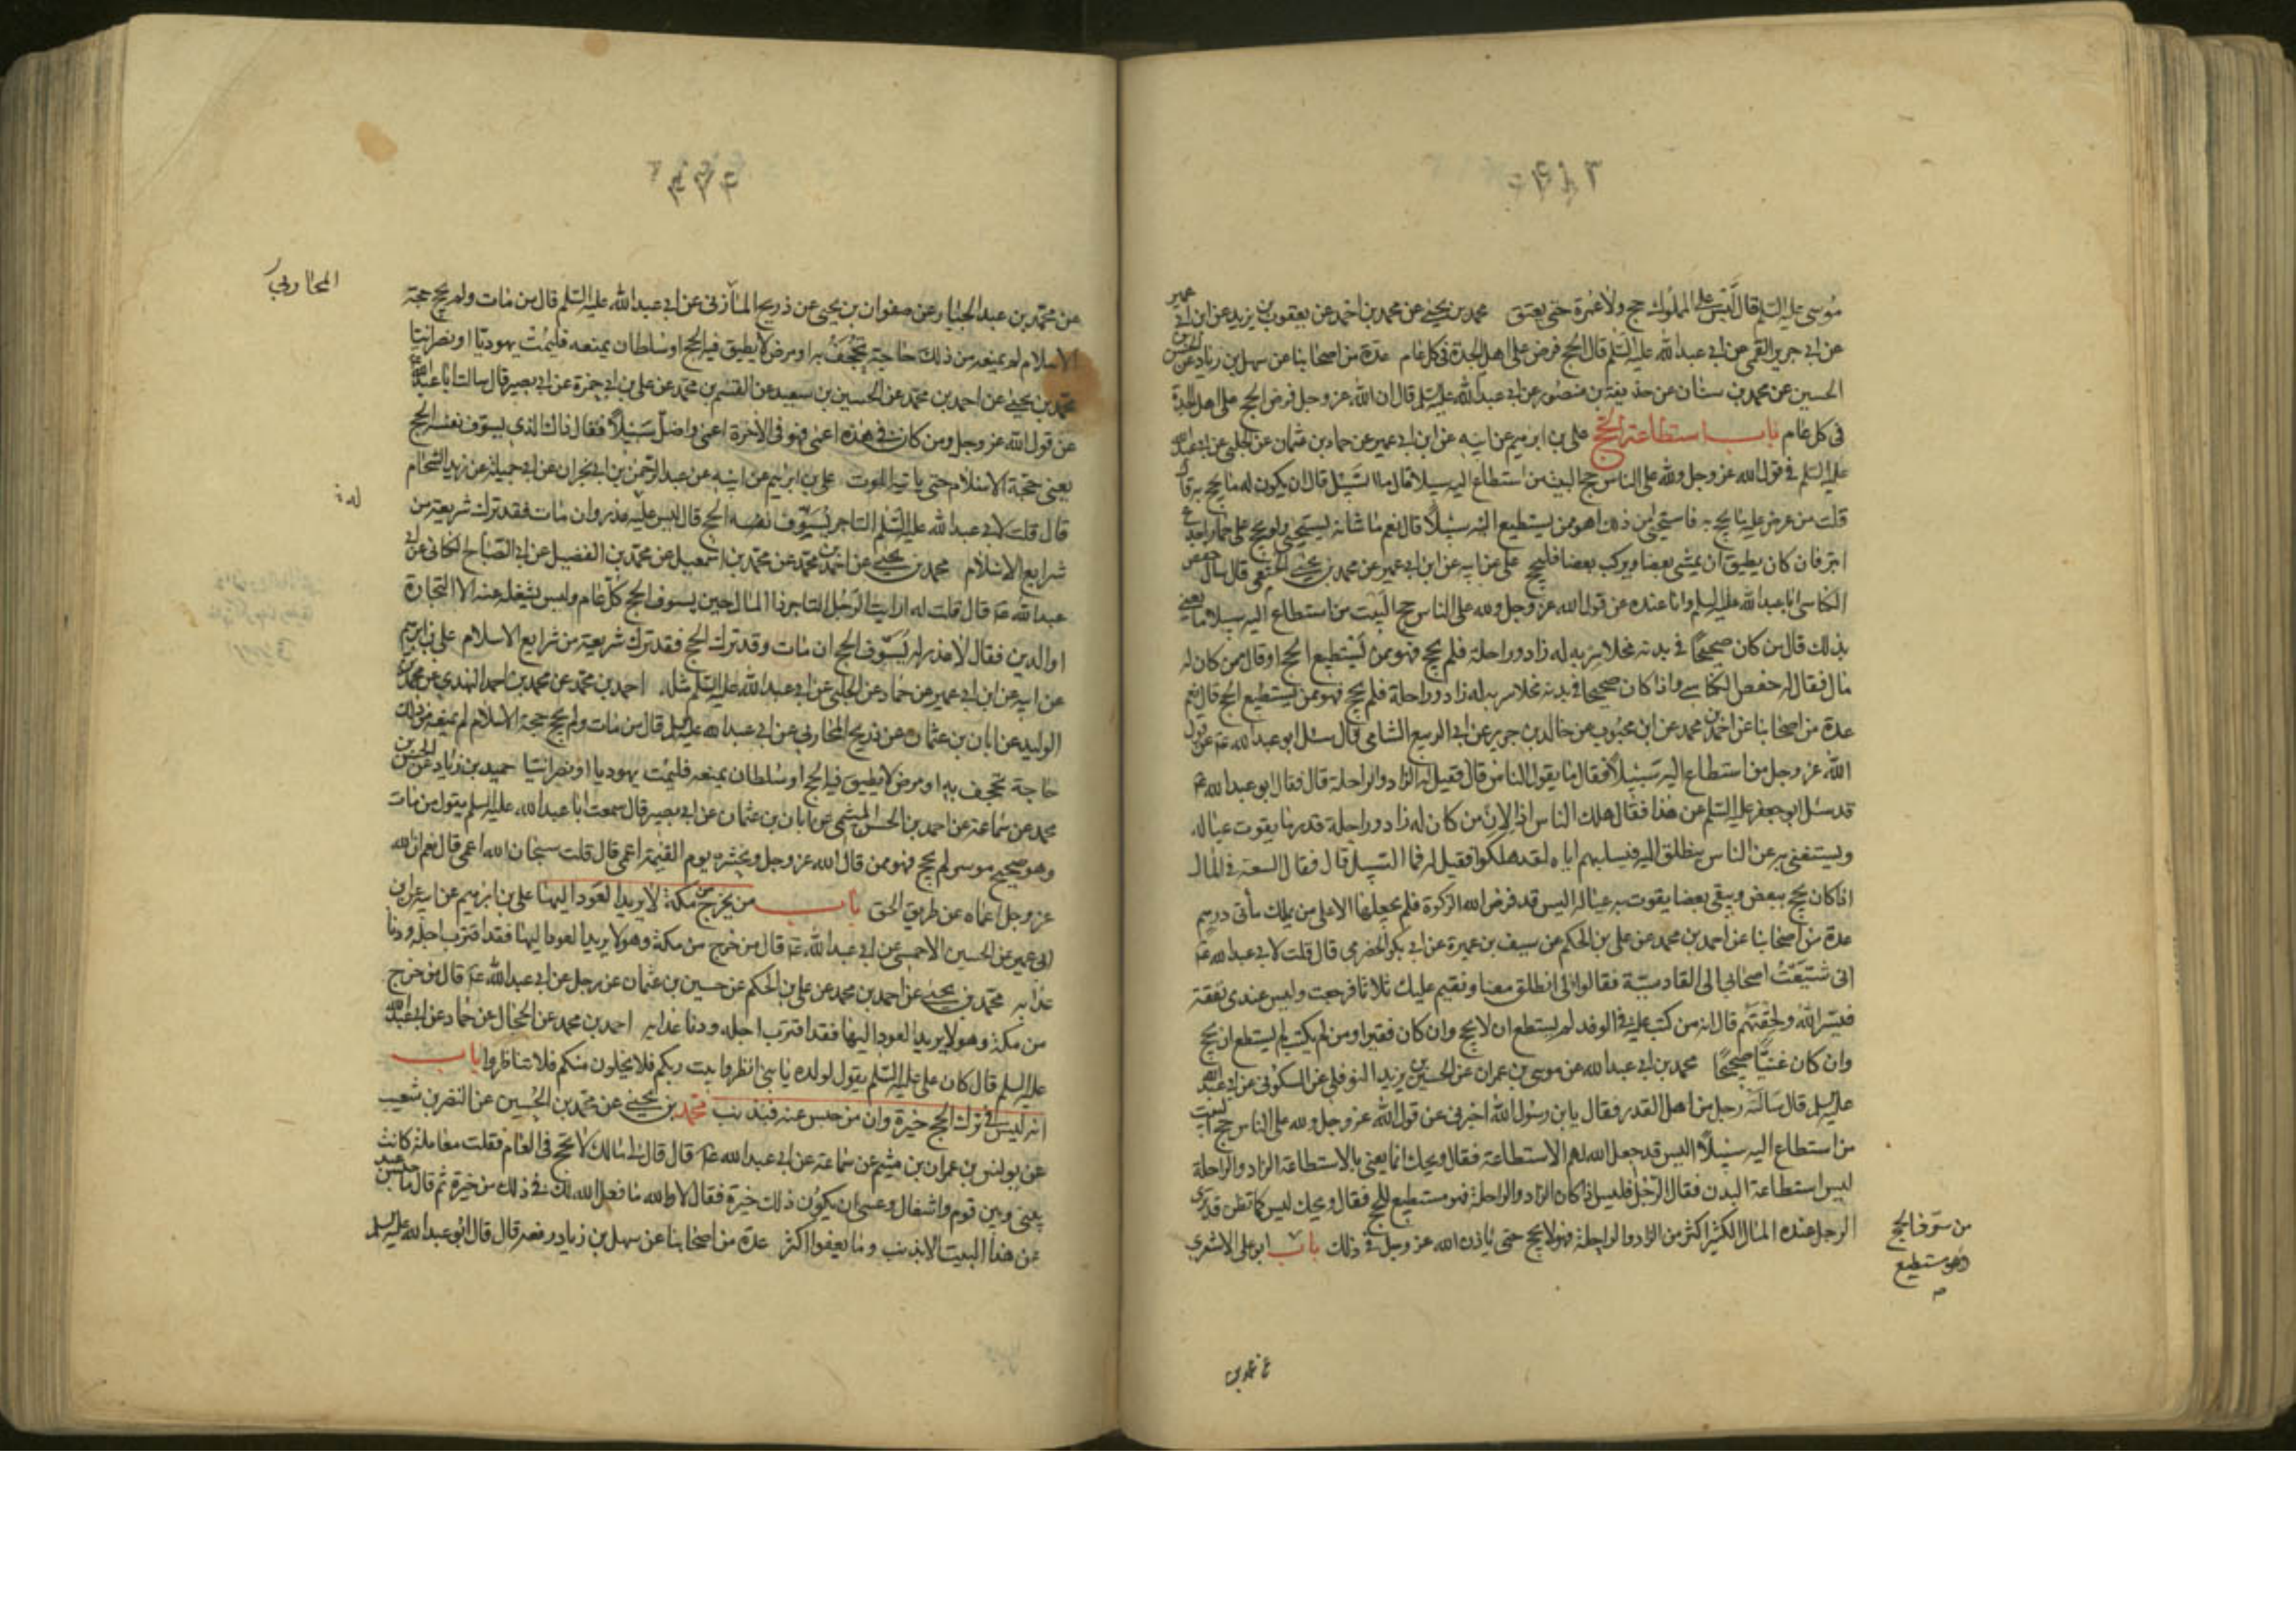 موسى عليه السلم قال ليس على المملوك حج ولا عمرة حتى يعتق محمد بن يحيى عن محمد بن احمد عن يعقوب بن يزيد عن ابن ابي عمير
عن ابي جرير القمي عن ابي عبد الله عليه السلم قال الحج فرض على اهل الجدة في كل عام عدة من اصحابنا عن سهل بن زياد عن الحسن بن
الحسين عن محمد بن سنان عن حذيفة بن منصور عن ابي عبد الله عليه السلم قال ان الله عز وجل فرض الحج على اهل الجدة
في كل عام باب استطاعة الحج علي بن ابرهيم عن ابيه عن ابن ابي عمير عن حماد بن عثمان عن الحلبي عن ابي عبد الله
عليه السلم في قول الله عز وجل ولله على الناس حج البيت من استطاع اليه سبيلا قال ما السبيل قال ان يكون له ما يحج به قال
قلت من عرض عليه ما يحج به فاستحيى من ذلك اهو ممن يستطيع اليه سبيلا قال نعم ما شانه يستحيي ولو يحج على حمار اجدع
ابتر فان كان يطيق ان يمشي بعضا ويركب بعضا فليحج علي عن ابيه عن ابن ابي عمير عن محمد بن يحيى الخثعمي قال سال حفص
الكناسي ابا عبد الله عليه السلم وانا عنده عن قول الله عز وجل ولله على الناس حج البيت من استطاع اليه سبيلا ما يعني
بذلك قال من كان صحيحا في بدنه مخلا سربه له زاد وراحلة فلم يحج فهو ممن يستطيع الحج او قال ممن كان له
مال فقال له حفص الكناسي واذا كان صحيحا في بدنه مخلا سربه له زاد وراحلة فلم يحج فهو ممن يستطيع الحج قال نعم
عدة من اصحابنا عن احمد بن محمد عن ابن محبوب عن خالد بن جرير عن ابي الربيع الشامي قال سئل ابو عبد الله ع عن قول
الله عز وجل من استطاع اليه سبيلا فقال ما يقول الناس قال فقيل له الزاد والراحلة قال فقال ابو عبد الله ع
قد سئل ابو جعفر عليه السلم عن هذا فقال هلك الناس اذا لان من كان له زاد وراحلة قدر ما يقوت عياله
ويستغني به عن الناس ينطلق اليه فيسلبهم اياه لقد هلكوا فقيل له فما السبيل قال فقال السعة في المال
اذا كان يحج ببعض ويبقى بعضا يقوت به عياله اليس قد فرض الله الزكوة فلم يجعلها الا على من يملك مأتي درهم
عدة من اصحابنا عن احمد بن محمد عن علي بن الحكم عن سيف بن عميرة عن ابي بكر الحضرمي قال قلت لابي عبد الله ع
اني شيعت اصحابي الى القادسية فقالوا لي انطلق معنا ونقيم عليك ثلاثا فرجعت وليس عندي نفقة
فيسر الله ولحقتهم قال انه من كتب عليه في الوفد لم يستطع ان لا يحج وان كان فقيرا ومن لم يكتب لم يستطع ان يحج
وان كان غنيا صحيحا محمد بن ابي عبد الله عن موسى بن عمران عن الحسين بن يزيد النوفلي عن السكوني عن ابي عبد الله
عليه السلم قال سأله رجل من اهل القدر فقال يابن رسول الله اخبرني عن قول الله عز وجل ولله على الناس حج البيت
من استطاع اليه سبيلا اليس قد جعل الله لهم الاستطاعة فقال ويحك انما يعني بالاستطاعة الزاد والراحلة
ليس استطاعة البدن فقال الرجل فليس اذا كان الزاد والراحلة فهو مستطيع للحج فقال ويحك ليس كما تظن قد ترى
الرجل عنده المال الكثير اكثر من الزاد والراحلة فهو لا يحج حتى ياذن الله عز وجل في ذلك باب ابو علي الاشعري
من سوف الحج
وهو مستطيع
عن محمد بن
عن محمد بن عبد الجبار عن صفوان بن يحيى عن ذريح المازني عن ابي عبد الله عليه السلم قال من مات ولم يحج حجة
المحاربي
الاسلام لم يمنعه من ذلك حاجة تجحف به او مرض لا يطيق فيه الحج او سلطان يمنعه فليمت يهوديا او نصرانيا
محمد بن يحيى عن احمد بن محمد عن الحسين بن سعيد عن القسم بن محمد عن علي بن ابي حمزة عن ابي بصير قال سالت ابا عبد الله
عن قول الله عز وجل ومن كان في هذه اعمى فهو في الاخرة اعمى واضل سبيلا فقال ذاك الذي يسوف نفسه الحج
يعني حجة الاسلام حتى ياتيه الموت علي بن ابرهيم عن ابيه عن عبد الرحمن بن ابي نجران عن ابي جميلة عن زيد الشحام
قال قلت لابي عبد الله عليه السلم التاجر يسوف نفسه الحج قال ليس عليه عذر وان مات فقد ترك شريعة من
له
شرايع الاسلام محمد بن يحيى عن احمد بن محمد عن محمد بن اسمعيل عن محمد بن الفضيل عن ابي الصباح الكناني عن ابي
عبد الله ع قال قلت له ارايت الرجل التاجر ذا المال حين يسوف الحج كل عام وليس يشغله عنه الا التجارة
او الدين فقال لا عذر له يسوف الحج ان مات وقد ترك الحج فقد ترك شريعة من شرايع الاسلام علي بن ابرهيم
عن ابيه عن ابن ابي عمير عن حماد عن الحلبي عن ابي عبد الله عليه السلم مثله احمد بن محمد عن محمد بن احمد النهدي عن محمد بن
الوليد عن ابان بن عثمان عن ذريح المحاربي عن ابي عبد الله عليه السلم قال من مات ولم يحج حجة الاسلام لم يمنعه من ذلك
حاجة تجحف به او مرض لا يطيق فيه الحج او سلطان يمنعه فليمت يهوديا او نصرانيا حميد بن زياد عن الحسن بن
محمد عن سماعة عن احمد بن الحسن الميثمي عن ابان بن عثمان عن ابي بصير قال سمعت ابا عبد الله عليه السلم يقول من مات
وهو صحيح موسر لم يحج فهو ممن قال الله عز وجل ونحشره يوم القيمة اعمى قال قلت سبحان الله اعمى قال نعم ان الله
عز وجل اعماه عن طريق الحق باب من يخرج من مكة لا يريد العود اليها علي بن ابرهيم عن ابيه عن ابن
ابي عمير عن الحسين الاحمسي عن ابي عبد الله ع قال من خرج من مكة وهو لا يريد العود اليها فقد اقترب اجله ودنا
عذابه محمد بن يحيى عن احمد بن محمد عن علي بن الحكم عن حسين بن عثمان عن رجل عن ابي عبد الله ع قال من خرج
من مكة وهو لا يريد العود اليها فقد اقترب اجله ودنا عذابه احمد بن محمد عن الحجال عن حماد عن ابي عبد الله
عليه السلم قال كان علي عليه السلم يقول لولده يا بني انظروا بيت ربكم فلا يخلون منكم فلا تناظروا باب
انه ليس في ترك الحج خيرة وان من حبس عنه فبذنب محمد بن يحيى عن محمد بن الحسين عن النضر بن شعيب
عن يونس بن عمران بن ميثم عن سماعة عن ابي عبد الله ع قال قال لي مالك لا تحج في العام فقلت معاملة كانت
بيني وبين قوم واشغال وعسى ان يكون ذلك خيرة فقال لا والله ما فعل الله لك في ذلك من خيرة ثم قال ما حبس عبد
عن هذا البيت الا بذنب وما يعفوا اكثر عدة من اصحابنا عن سهل بن زياد رفعه قال قال ابو عبد الله عليه السلم